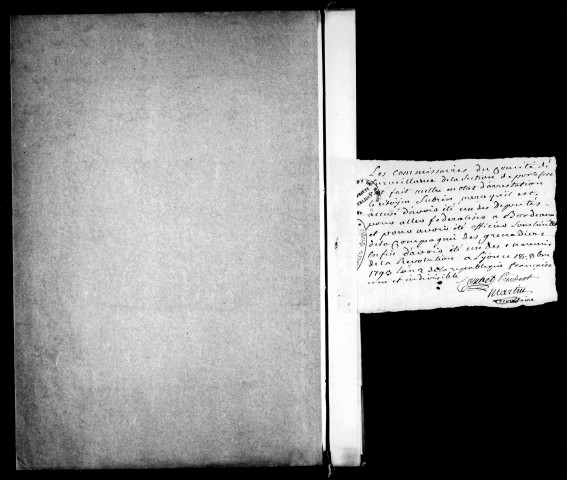 Les commissaires du Comité de
surveillance de la Section de porte froc
ont fait mettre en état d'arrestation
le citoyen Subrin parce qu'il est
accusé d'avoir été un des députés
pour aller fédéraliser a Bordeaux
et pour avoir été officier Sous lieutet
de la Compagnie des grenadiers
Enfin d'avoir été un des ennemis
de la Révolution a Lyon ce 18. 8bre
1793 Lan 2 de la république française
une et indivisible
président
Martin
secrétaire